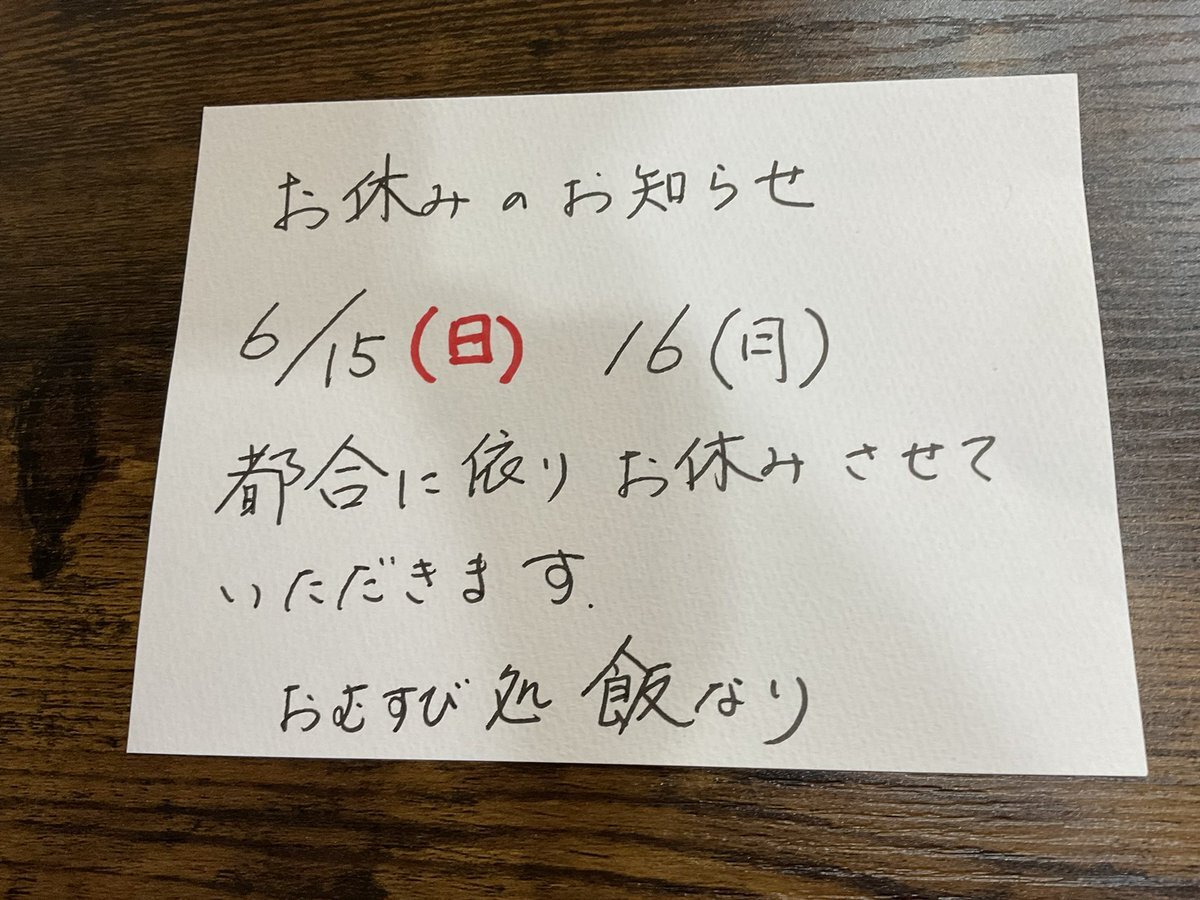 お休みのお知らせ
6/15(日) 16(月)
都合に依りお休みさせて
いただきます.
おむすび処 飯なり